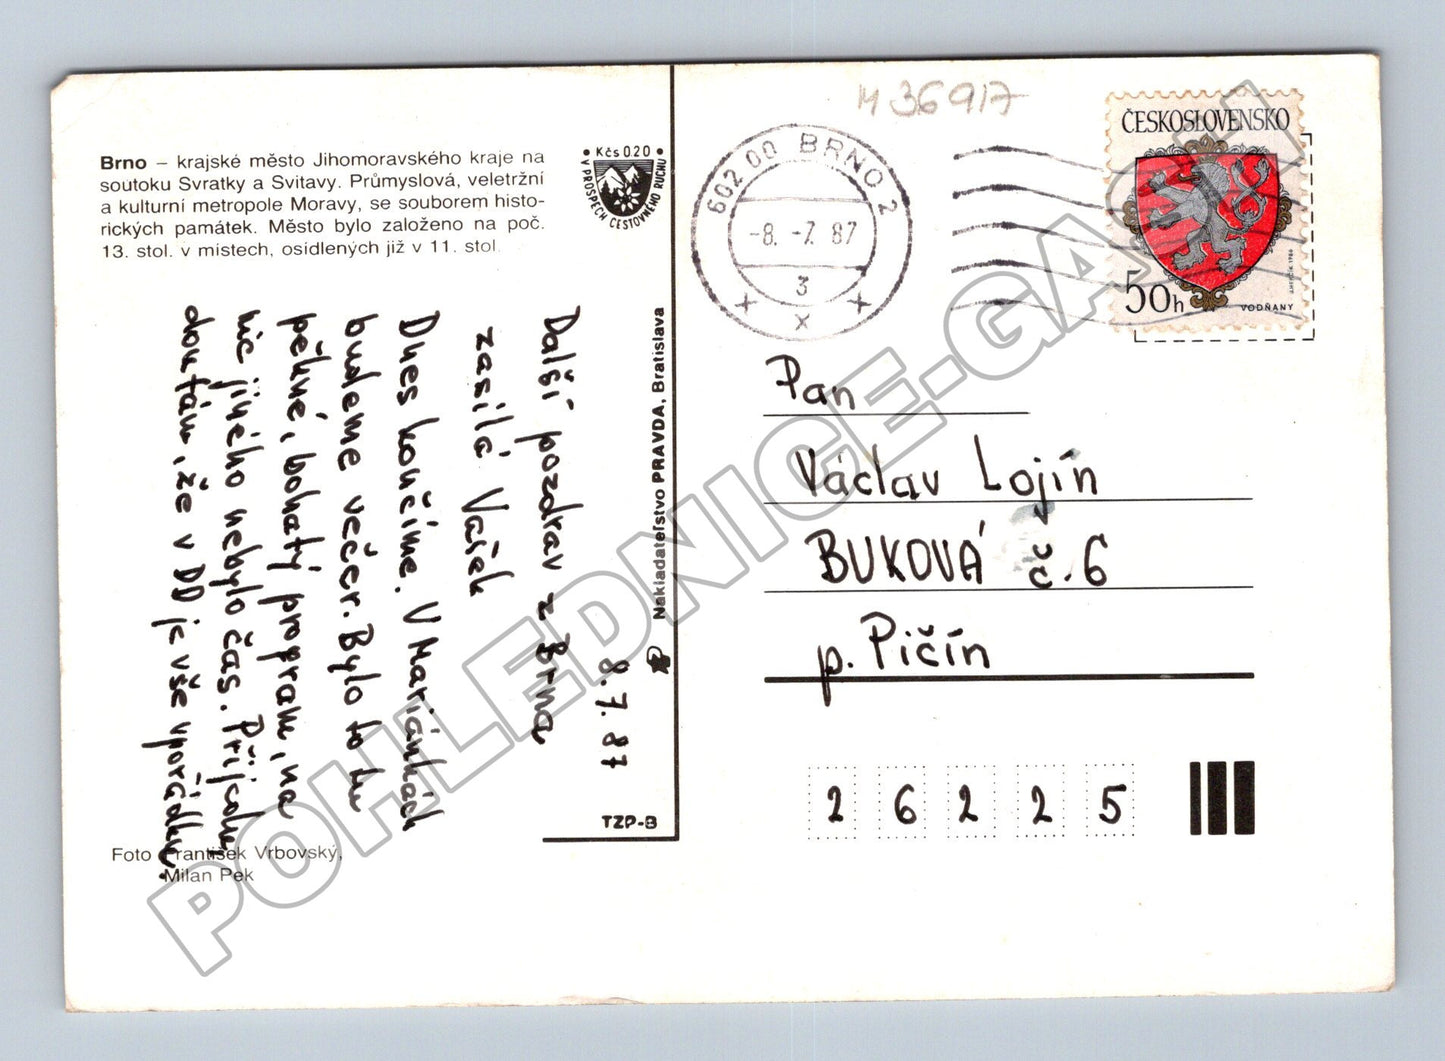 Brno – krajské město Jihomoravského kraje na
soutoku Svratky a Svitavy. Průmyslová, veletržní
a kulturní metropole Moravy, se souborem histo-
rických památek. Město bylo založeno na poč.
13. stol. v místech, osídlených již v 11. stol.
Kčs 020
V PROSPĚCH CESTOVNÉHO RUCHU
M 36917
602 00 BRNO 2
-8. -7. 87
3
ČESKOSLOVENSKO
50h
VODŇANY
Další pozdrav z Brna 8.7.87
zasílá Vašek
Dnes končíme. V Mariánkách
budeme večer. Bylo to tu
pěkné, bohatý program, na
nic jiného nebylo čas. Přijedu,
doufám, že v DD je vše vpořádku
Nakladateľstvo PRAVDA, Bratislava
TZP-B
Foto František Vrbovský,
Milan Pek
Pan
Václav Lojín
BUKOVÁ č. 6
p. Pičín
26225
POHLEDNICE-GASH